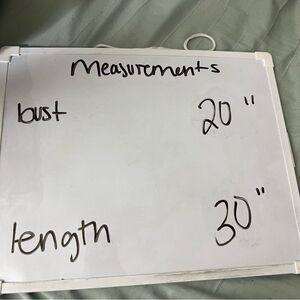 measurements
bust 20"
length 30"